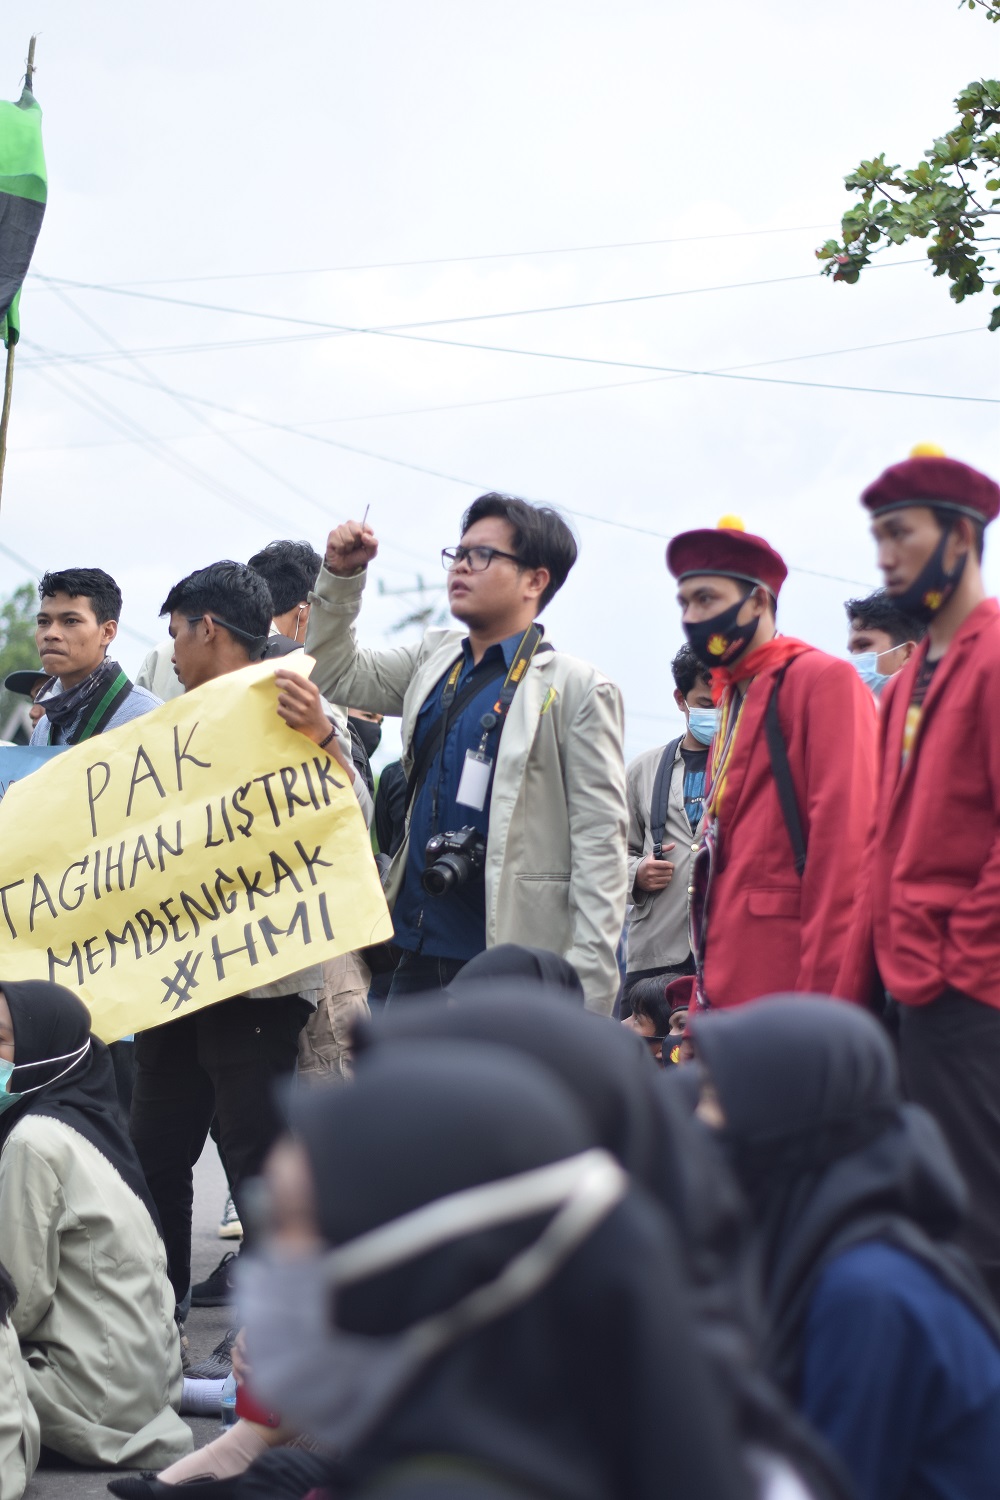 PAK
TAGIHAN LISTRIK
MEMBENGKAK
#HMI